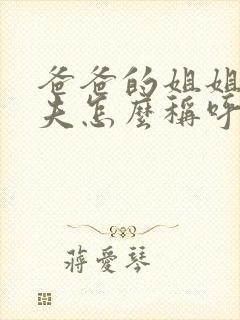 爸爸的姐姐
夫怎麼稱呼
蔣愛琴